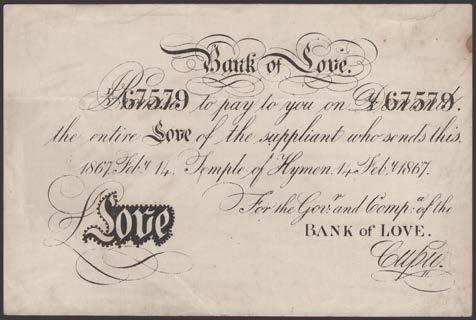 Bank of Love.
67579 to pay to you on 67579
the entire Love of the suppliant who sends this.
1867. Feby. 14. Temple of Hymen. 14 Feby. 1867.
For the Govr. and Compa. of the
BANK of LOVE.
£Love
Cupid.